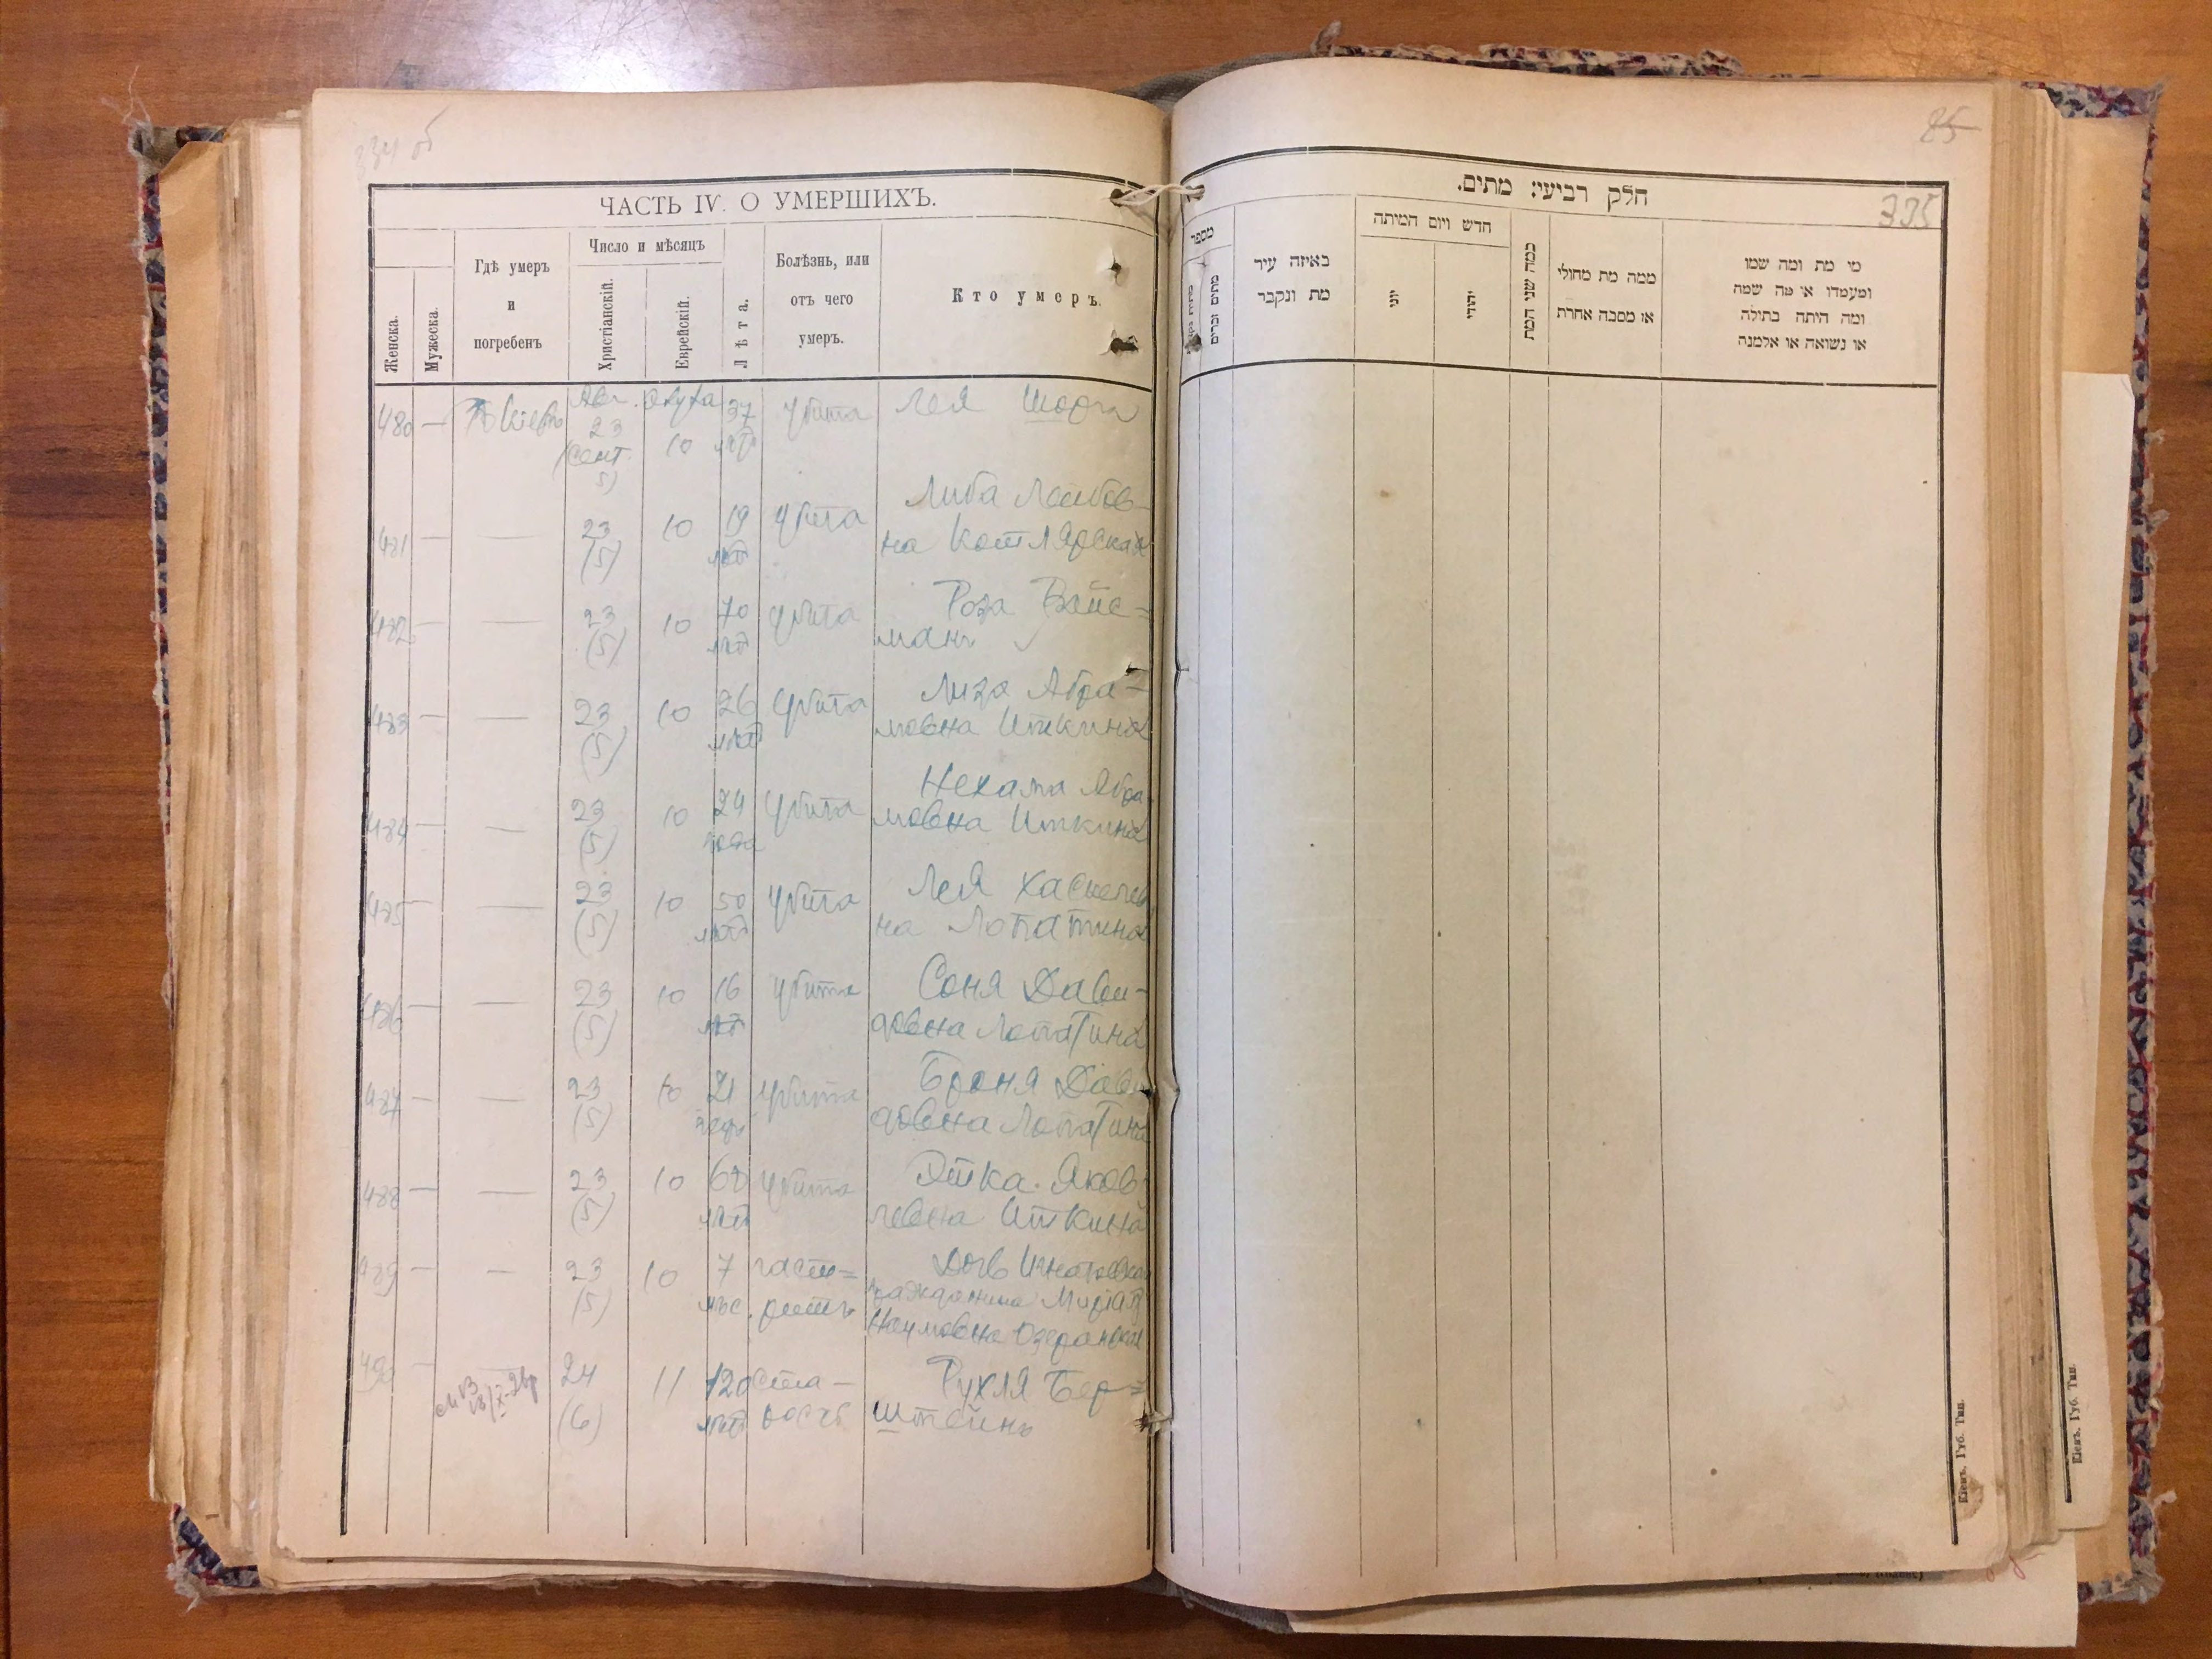 334 об
ЧАСТЬ IV. О УМЕРШИХЪ.
Женска.
Мужеска.
Гдѣ умеръ
и
погребенъ
Число и мѣсяцъ
Христіанскій.
Еврейскій.
Лѣта.
Болѣзнь, или
отъ чего
умеръ.
Кто умеръ.
480 — Авг. 23 (Сент. 5) 10 37 лѣтъ Убита Лея
481 — — 23 10 19 Убита Либа Лейбов-
(5) лѣтъ на Котлярская
482 — — 23 10 70 Убита Роза Вайс=
(5) лѣтъ манъ
483 — — 23 10 26 Убита Лиза Абра-
(5) лѣтъ мовна Иткина
484 — — 23 10 24 Убита Нехама Абра
(5) года мовна Иткина
485 — — 23 10 50 Убита Лея
(5) лѣтъ на Лопатина
486 — — 23 10 16 Убита Соня Дави-
(5) лѣтъ довна Лопатина
487 — — 23 10 21 Убита Броня Дави
(5) годъ довна Лопатина
488 — — 23 10 Убита Этка Яков
(5) лѣтъ левна Иткина
489 — — 23 10 7 гаст=
(5) мѣс. ритъ
Наумовна
490 — 24 11 120 Ста- Рухля Бер=
(6) лѣтъ рость штейнъ
85
335
חלק רביעי: מתים.
מספר
מתים זכרים
באיזה עיר
מת ונקבר
חדש ויום המיתה
יוני
יהודי
כמה שני המת
ממה מת מחולי
או מסבה אחרת
מי מת ומה שמו
ומעמדו או מה שמה
ומה היתה בתולה
או נשואה או אלמנה
Кіевъ. Губ. Тип.
Кіевъ. Губ. Тип.